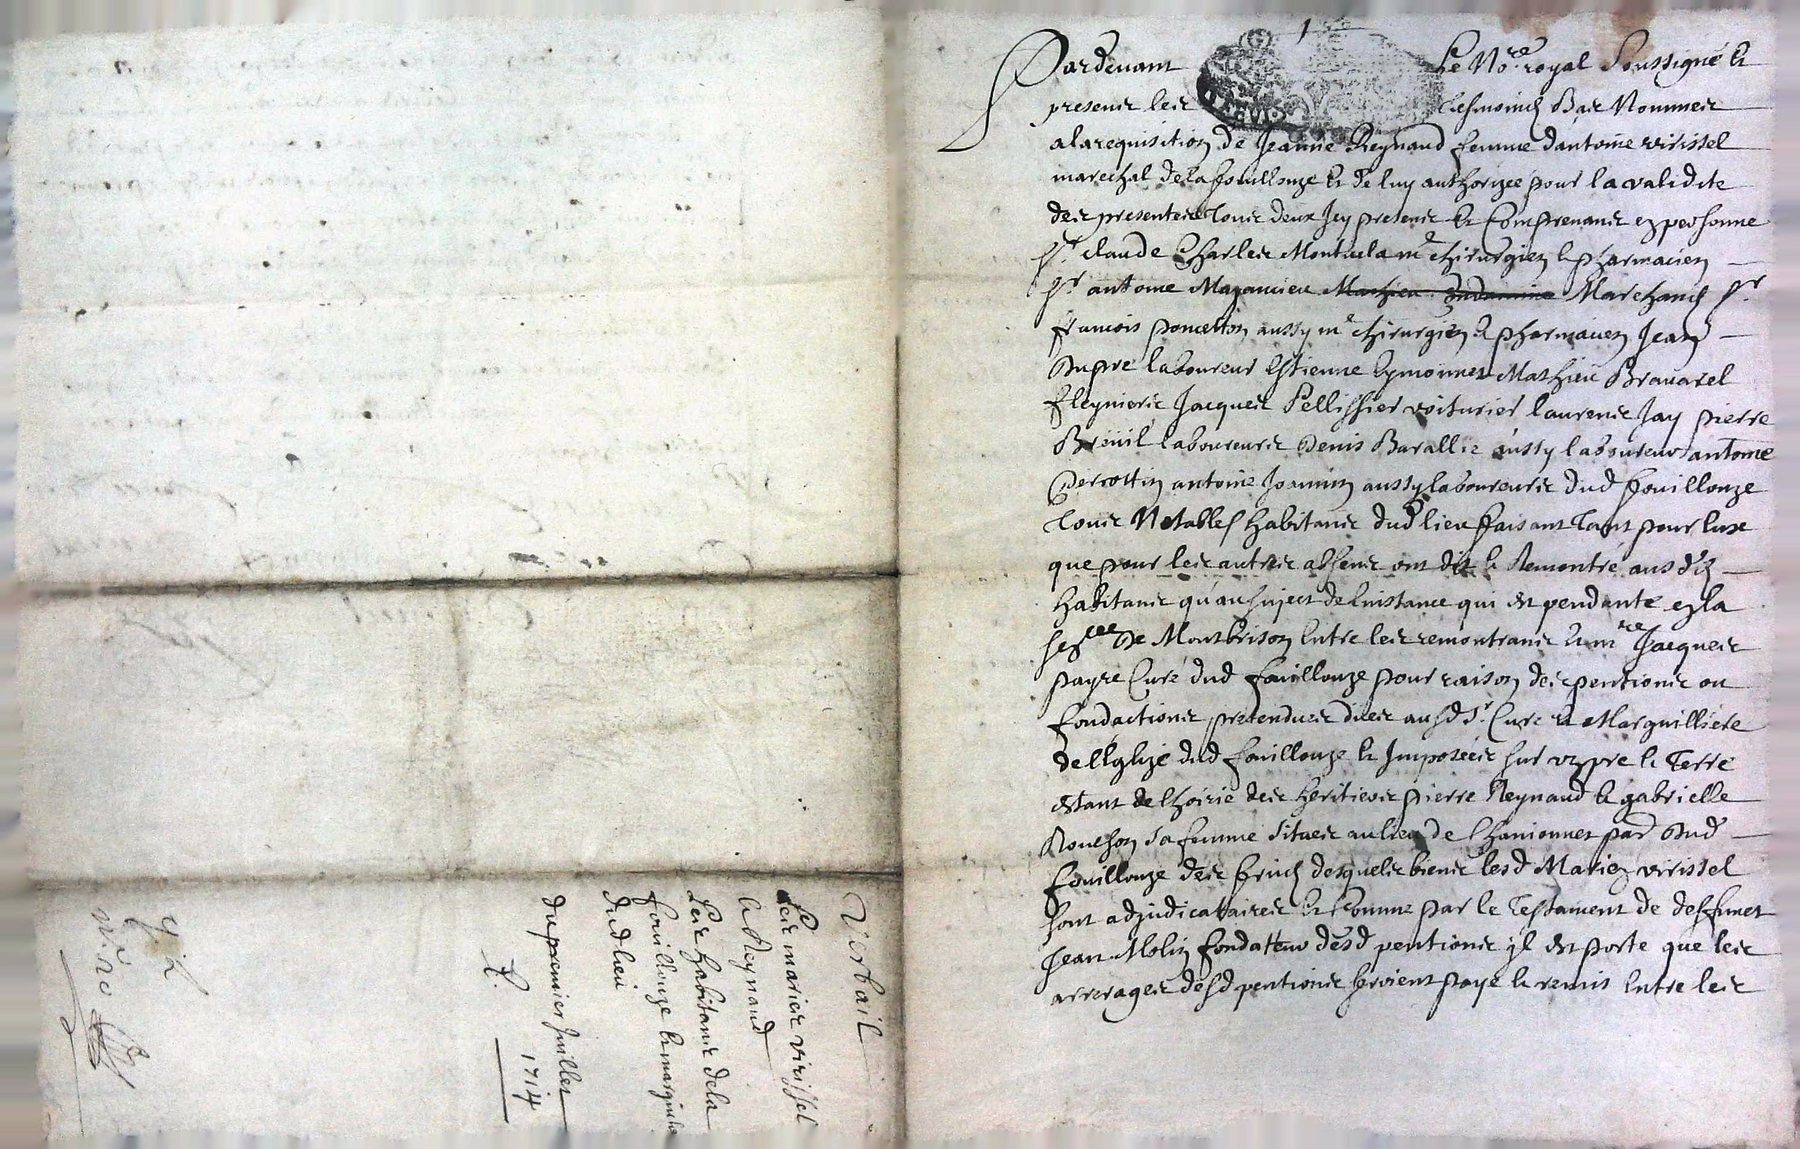 1
Pardevant Le No.re royal soussigné &
presents les tesmoins Bas Nommes
a la requisition de Jeanne Reynaud femme dantoine virissel
mareschal de la fouillouze & de luy authorizée pour la validite
des presentes tous deux Icy presents & Comprenants en personne
Sr. claude Charles Montuclla me chirurgien & pharmacien
Sr antoine Mazancieu Marchand Sr.
francois poncetton aussy me chirurgien & pharmacien Jean
Dupré laboureur Estienne Eymonnet Mathieu Bravarel
Jacques Pellissier voiturier laurens Jay pierre
Breuil laboureurs Denis Barallie aussy laboureur antoine
Percottin antoine Joannin aussy laboureurs dud fouillouze
tous Notables habitans dud lieu faisant tant pour luxe
que pour les autres absens ont dit & Remontré ausd.
habitans qu'au suject de linstance qui est pendante en la
senee De Montbrison Entre les remontrans & mre Jacques
payre Curé dud fouillouze pour raison des pentions ou
fondactions pretendues dues ausd Sr. Curé & Marguilliers
de l'Eglize dud fouillouze & Imposées sur un pré & Terre
estant de l'hoirie des heritiers pierre Reynaud & gabrielle
Rouchon sa femme situes au lieu de Chanionnet par dud
fouillouze des fruicts desquels biens lesd Mariez virissel
sont adjudicataires & Comme par le Testament de deffunct
Jean Molin fondatteur desd pentions il est porté que les
arrerages desd pentions seroient payé & remis Entre les
Verbail
Les maries virissel
& Reynaud
Les habitans de la
fouillouze & marguilliers
dud lieu
du premier juillet
1714